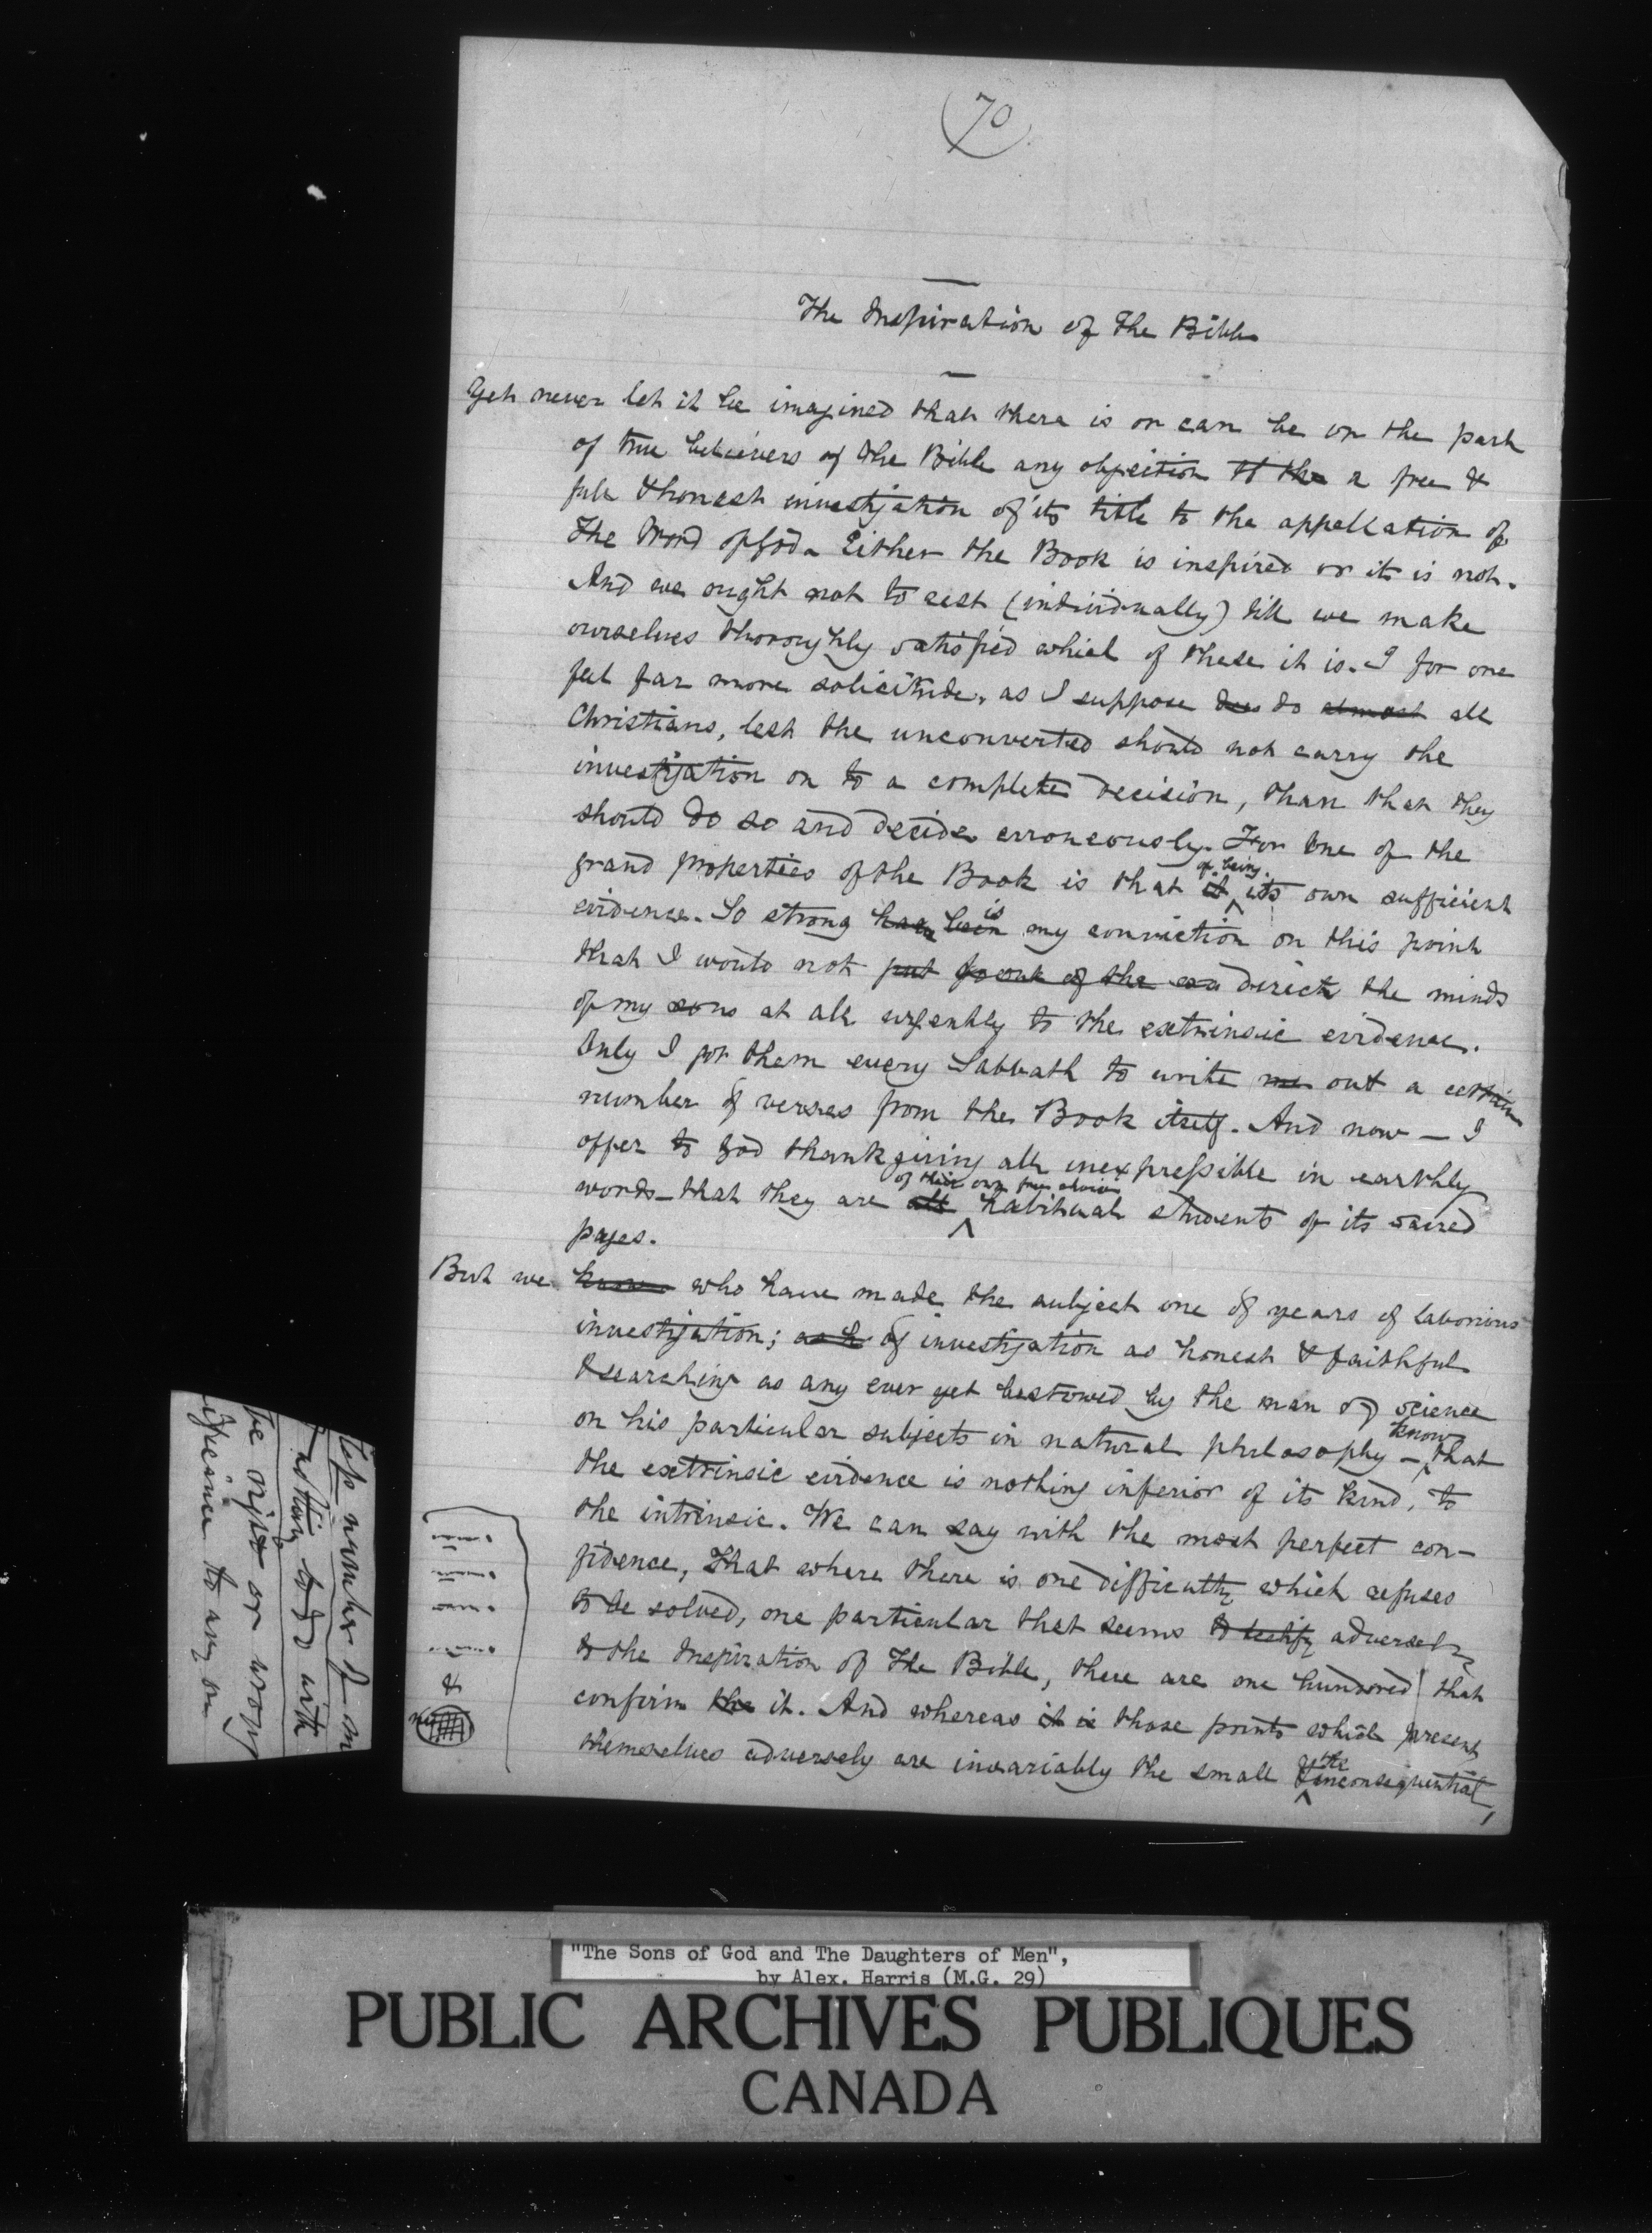 70
The Inspiration of the Bible
Yet never let it be imagined that there is or can be on the part
of true believers of the Bible any objection to the a free &
full & honest investigation of its title to the appellation of
The Word of God. Either the Book is inspired or it is not.
And we ought not to rest (individually) till we make
ourselves thoroughly satisfied which of these it is. I for one
feel far more solicitude, as I suppose does do almost all
Christians, lest the unconverted should not carry the
investigation on to a complete decision, than that they
should do so and decide erroneously. For one of the
grand properties of the Book is that it of being its own sufficient
evidence. So strong has been is my conviction on this point
that I would not put the direct the minds
of my sons at all urgently to the extrinsic evidence.
Only I got them every Sabbath to write me out a certain
number of verses from the Book itself. And now — I
offer to God thanksgiving all inexpressible in earthly
words — that they are all of their own free choice habitual students of its sacred
pages.
But we know who have made the subject one of years of laborious
investigation; of investigation as honest & faithful
& searching as any ever yet bestowed by the man of science
on his particular subjects in natural philosophy — know that
the extrinsic evidence is nothing inferior of its kind, to
the intrinsic. We can say with the most perfect con-
fidence, that where there is one difficulty which refuses
to be solved, one particular that seems to testify adversely
to the Inspiration of The Bible, there are one hundred that
confirm the it. And whereas it is those points which present
themselves adversely are invariably the small & the inconsequential,
&
number I
nothing to do with
be right or wrong
to any one
"The Sons of God and The Daughters of Men",
by Alex. Harris (M.G. 29)
PUBLIC ARCHIVES PUBLIQUES
CANADA